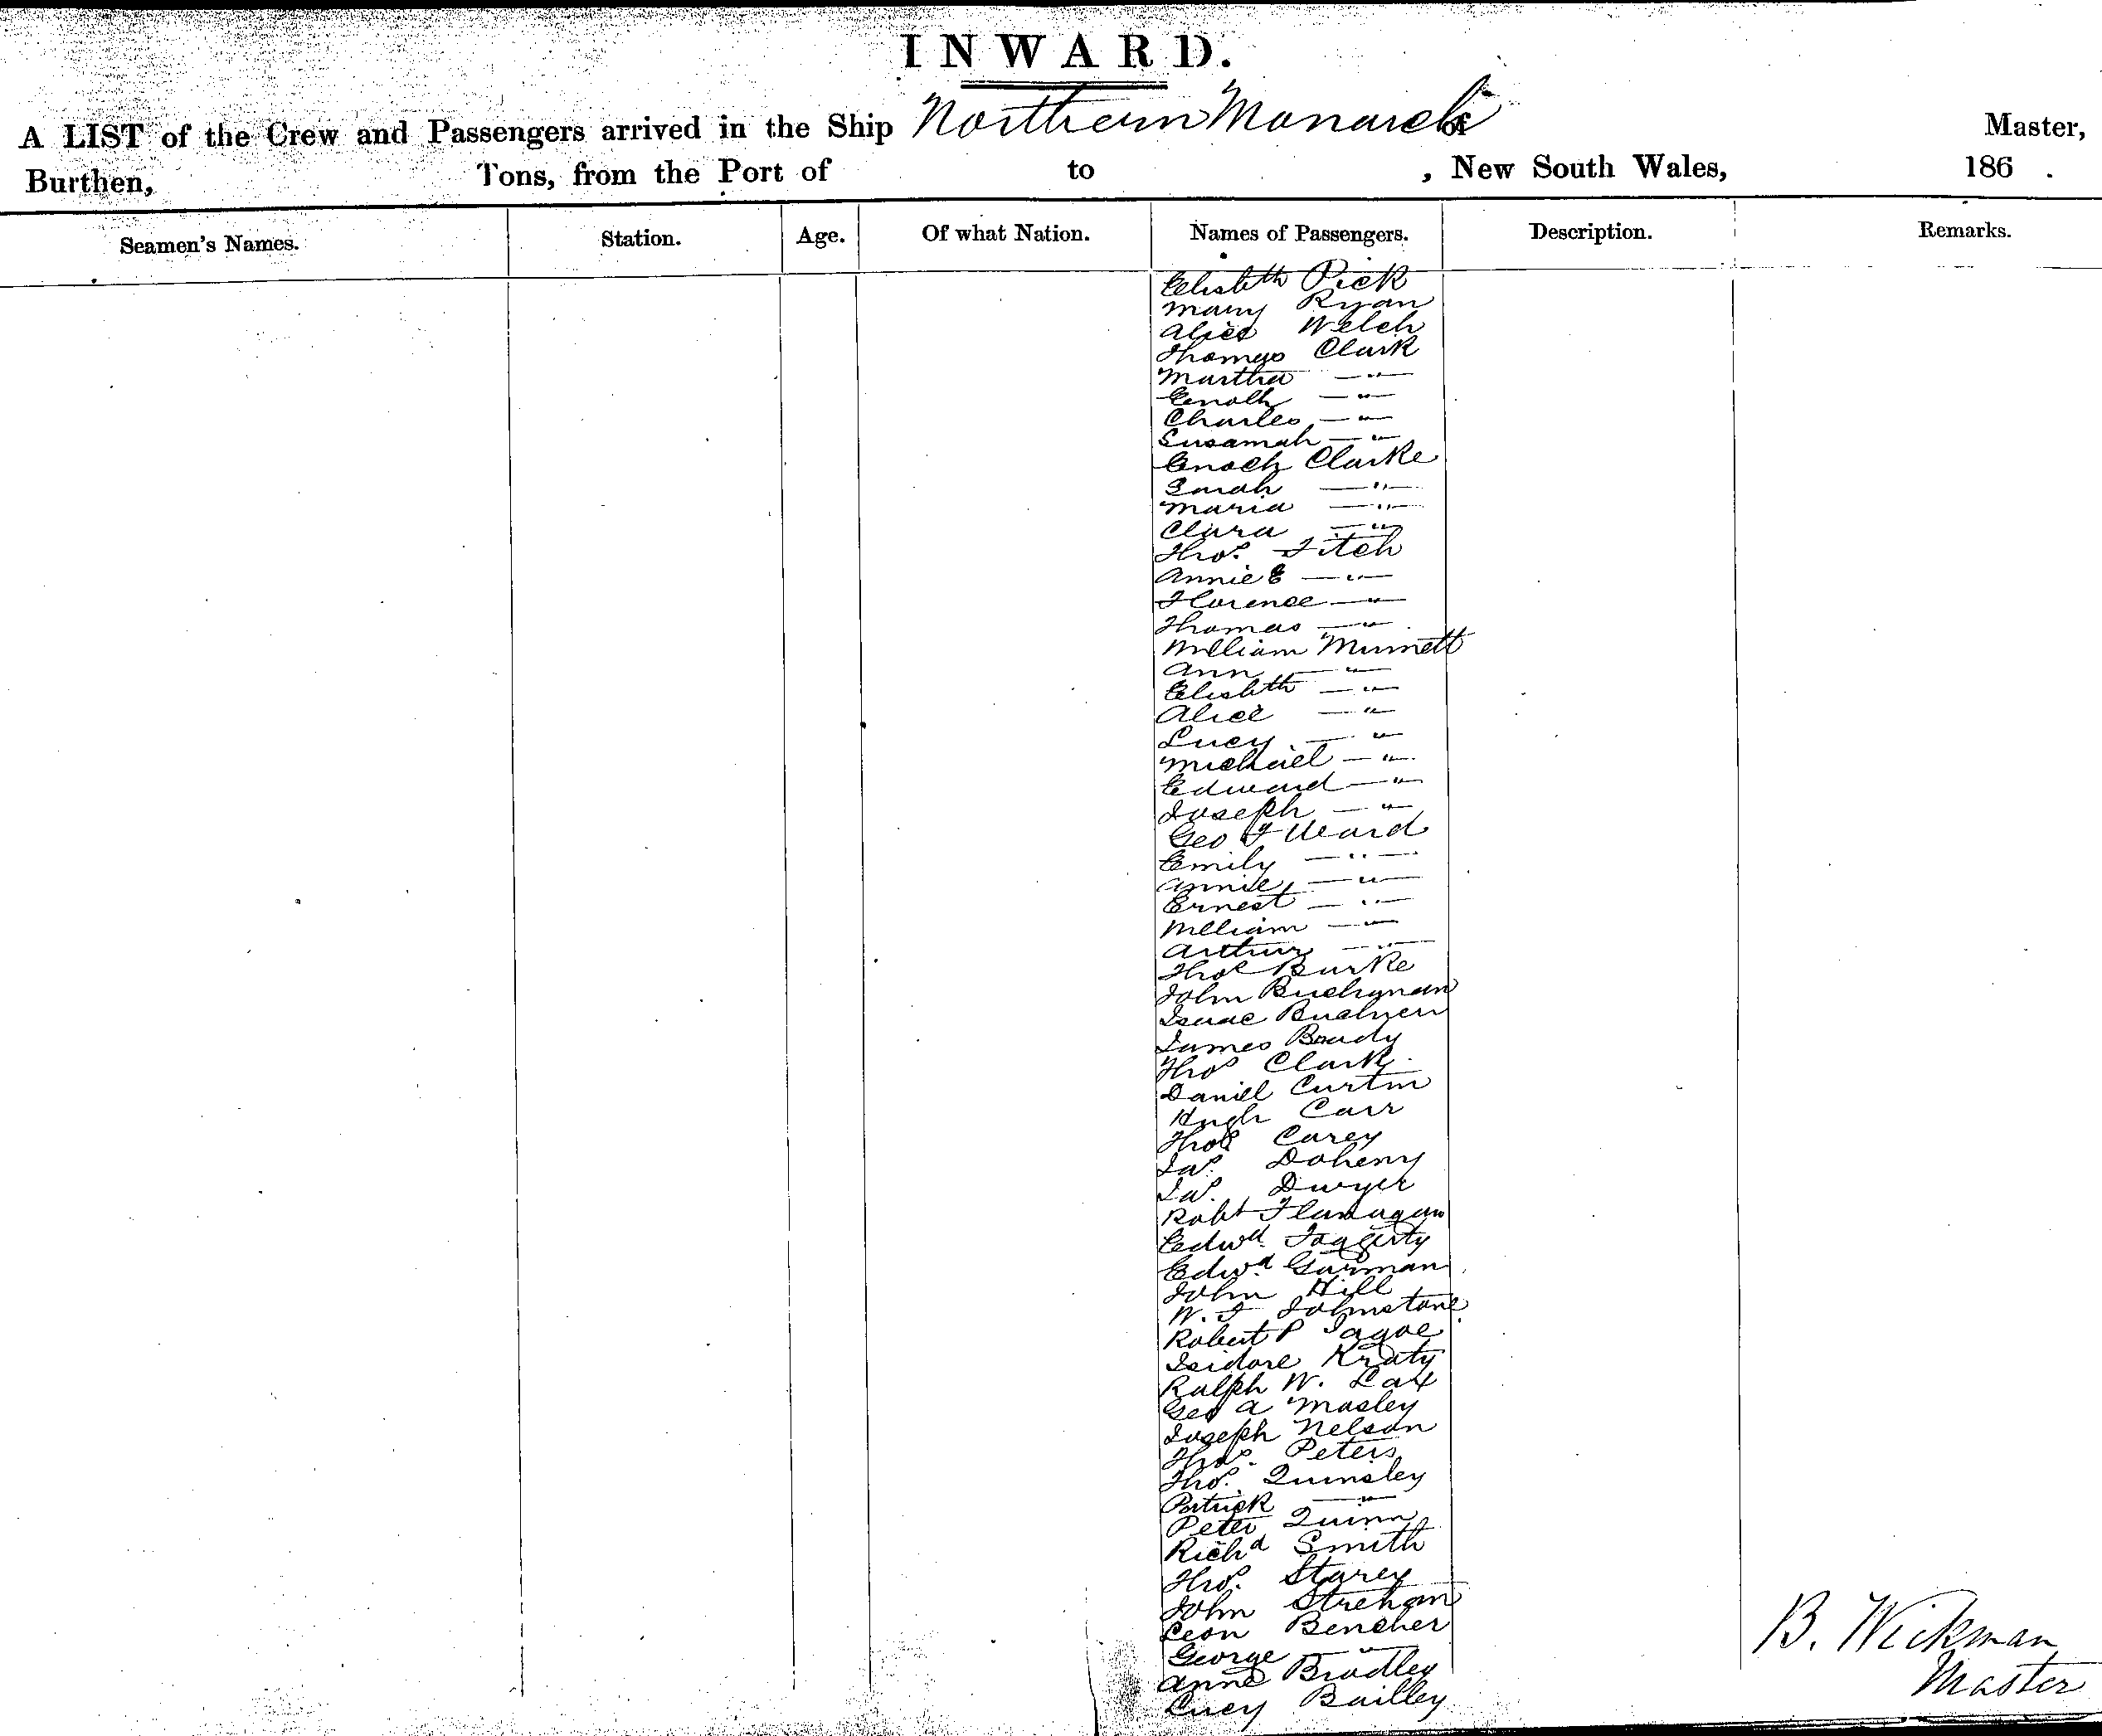 INWARD.
A LIST of the Crew and Passengers arrived in the Ship Northern Monarch of Master,
Burthen, Tons, from the Port of to , New South Wales, 186 .
Seamen's Names. Station. Age. Of what Nation. Names of Passengers. Description. Remarks.
Elisbth Pick
Mary Ryan
Alice Welch
Thomas Clark
Martha — " —
Enoch — " —
Charles — " —
Susannah — " —
Enoch Clarke
Sarah — " —
Maria — " —
Clara — " —
Thos. Fitch
Annie E — " —
Florence — " —
Thomas — " —
William
Ann — " —
Elisbth — " —
Alice — " —
Lucy — " —
Michael — " —
Edward — " —
Joseph — " —
Geo F Ward
Emily — " —
Annie — " —
Ernest — " —
William — " —
Arthur — " —
Thos Burke
John Buchanan
Isaac
James Brady
Thos Clark
Daniel Curtin
Hugh Carr
Thos Carey
Jas. Doheny
Jas. Dwyer
Robt Flanagan
Edwd. Fogerty
Edwd Garman
John Hill
W. J Johnstone
Robert P Jagoe
Isidore Kraty
Ralph W. Lax
Geo A Mosley
Joseph Nelson
Thos. Peters
Thos. Quinsley
Patrick — " —
Peter Quinn
Richd Smith
Thos. Storey
John
Leon Bencher
George — " —
Anne Bradley
Lucy Bailley
B. Wickman
Master